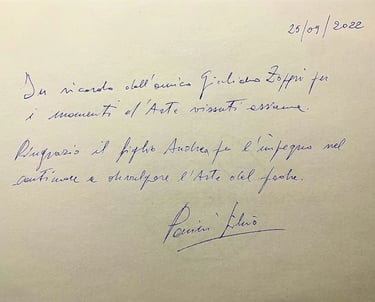 25/09/2022
In ricordo dell'amico Giuliano Zoppi per
i momenti d'Arte vissuti assieme.
Ringrazio il figlio Andrea per l'impegno nel
continuare a divulgare l'Arte del padre.
Silvio